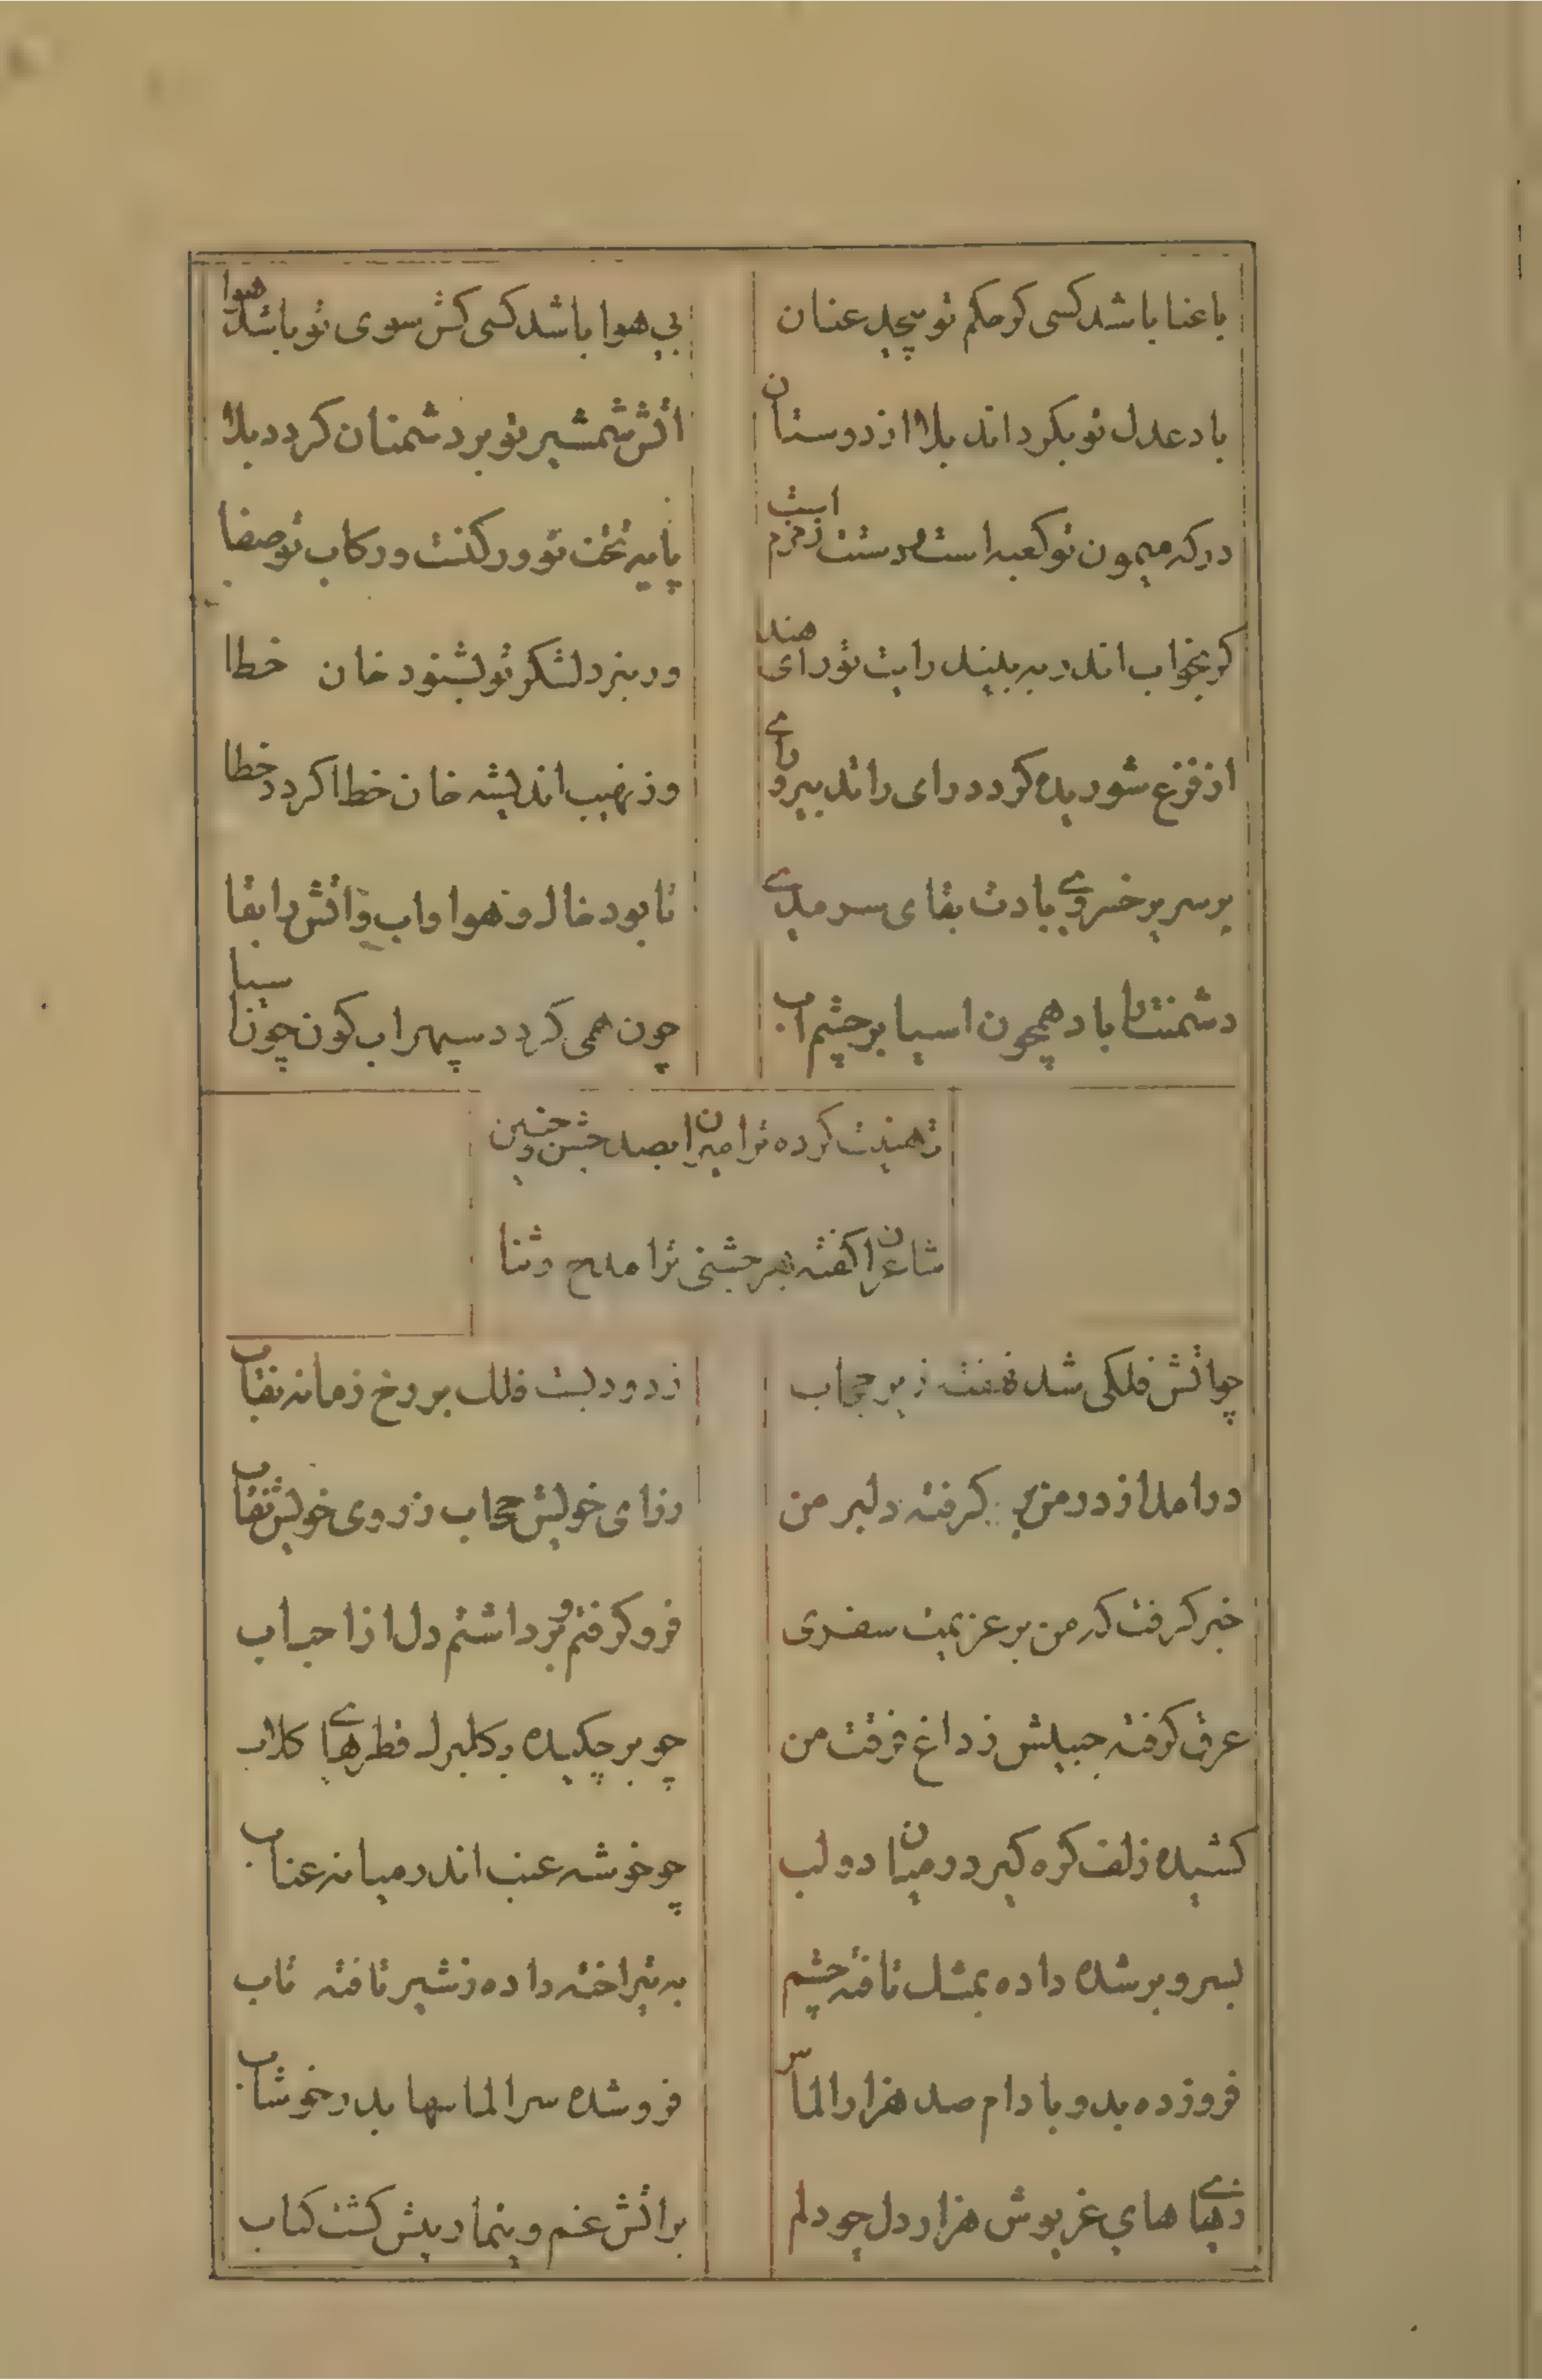 باعنا باشد کسی کو حکم تو پیچد عنان
بی هوا باشد کسی کش سوی تو باشد هوا
باد عدل تو بکرداند بلا از دوستان
اتش شمشیر تو بر دشمنان کردد بلا
درکه میمون تو کعبه است و دستت زمزم است
پایه تخت تو ورکنت ورکاب تو صفا
کر بخواب اندر به بیند رایت تو رای هند
ور بنزد لشکر تو بشنود خان خطا
از فزع شوریده کردد رای را تدبیر و رای
وز نهیب اندیشه خان خطا کردد خطا
بر سریر خسروی بادت بقای سرمدی
تا بود خاک و هوا واب و اتش را بقا
دشمنت را باد همچون اسیا بر چشم اب
چون همی کردد سپهر اب کون چون اسیا
تهنیت کرده ترا میران بصد جشن چنین
شاعران کفته بهر جشنی ترا مدح و ثنا
چو اتش فلکی شد نهفته زیر حجاب
زدود بست فلک بر رخ زمانه نقاب
درامد از در من کرفته دلبر من
زرای خویش حجاب و زروی خویش نقاب
خبر کرفت که من بر عزیمت سفری
فرو کرفتم و برداشتم دل از احباب
عرق کرفته جبینش ز داغ فرقت من
چو بر چکیده بکلبرک قطرهای کلاب
کشیده زلف کره کیر در میان دو لب
چو خوشه عنب اندر میانه عناب
بسرو بر شده داده بمشک تافته چشم
به تیر اخته داده زشیر تافته تاب
فروزده بدو بادام صد هزار الماس
فروشده سر الماسها بدر خوشاب
هزار دل چو دلم
بر اتش غم و کشت کباب